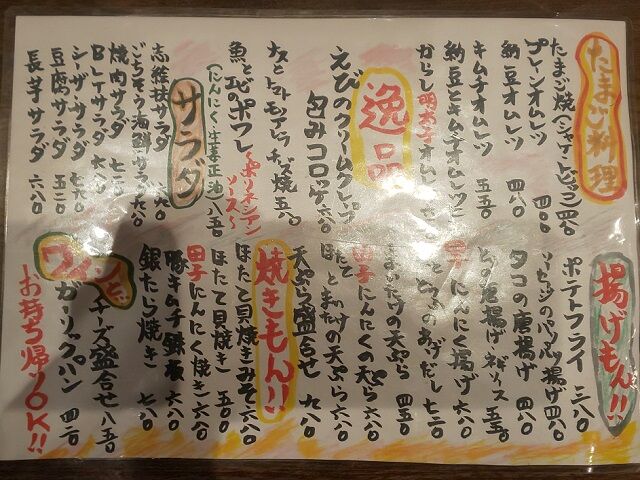 たまご料理
たまご焼
プレーンオムレツ 四〇〇
納豆オムレツ 四八〇
キムチオムレツ 五五〇
納豆とキムチオムレツ
からし明太子オム
逸品
えびのクリームクレープ
包みコロッケ 六〇
ナスとトマトモッアレラチーズ焼 五八〇
魚とエビのポワレ
〜ポリネシアンソース〜
(にんにく・生姜正油) 八五〇
サラダ
志維林サラダ
ごちそう海鮮サラダ
焼肉サラダ 七八〇
BLTサラダ 六八〇
シーザーサラダ 六八〇
豆腐サラダ 五二〇
長芋サラダ 六八〇
揚げもん!!
ポテトフライ 三八〇
揚げ 四八〇
タコの唐揚げ 四八〇
唐揚げ ネギソース 五五〇
にんにく揚げ 六八〇
おろしだし 七二〇
の天ぷら 四五〇
田子にんにくの天ぷら 六八〇
の天ぷら 六八〇
天ぷら盛合せ 九八〇
焼きもん!!
ほたて貝焼きみそ 六八〇
ほたて貝焼き 六八〇
田子にんにく焼き 六八〇
豚キムチ鉄板 六八〇
銀たら焼き 七八〇
ワインと…
チーズ盛合せ 八五〇
ガーリックパン 四二〇
お持ち帰りOK!!